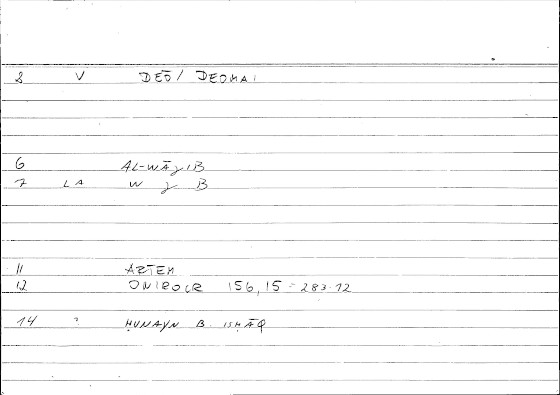 2 V DEŌ / DEOMAI
6 AL-WĀǧIB
7 LA W ǧ B
11 ARTEM
12 ONIROCR 156,15 - 283.12
14 ? ḤUNAYN B. ISḤĀQ